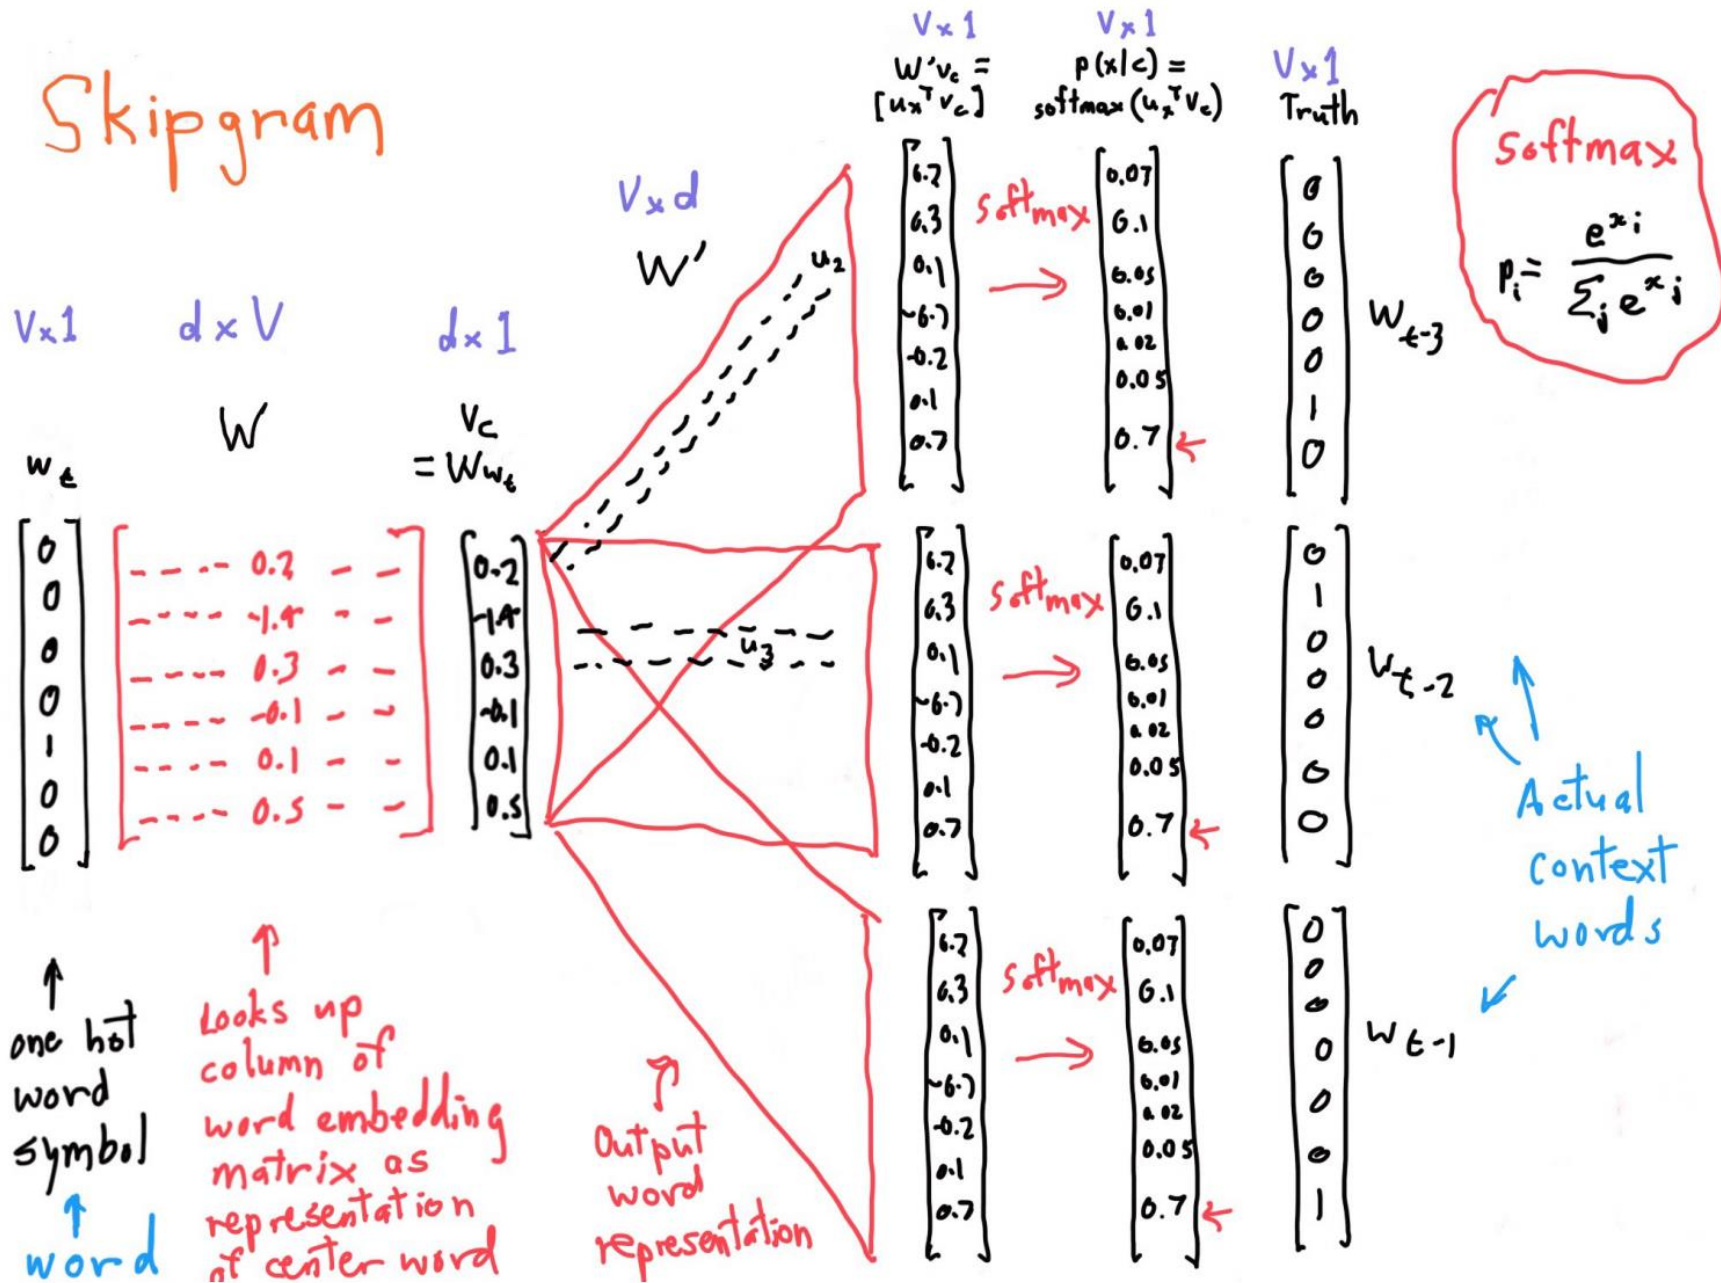 Skipgram
V x 1
d x V
W
w_t
0
0
0
0
1
0
0
---- 0.2 -- --
---- -1.4 -- --
---- 0.3 -- --
---- -0.1 -- --
---- 0.1 -- --
---- 0.5 -- --
d x 1
v_c
= W w_t
0.2
-1.4
0.3
-0.1
0.1
0.5
V x d
W'
u_2
u_3
V x 1
W'v_c =
[u_x^T v_c]
V x 1
p(x|c) =
softmax(u_x^T v_c)
V x 1
Truth
6.7
6.3
0.1
-0.7
-0.2
0.1
0.7
softmax
→
0.07
0.1
0.05
0.01
0.02
0.05
0.7 ←
0
0
0
0
0
1
0
w_t-3
6.7
6.3
0.1
-0.7
-0.2
0.1
0.7
softmax
→
0.07
0.1
0.05
0.01
0.02
0.05
0.7 ←
0
1
0
0
0
0
0
w_t-2
6.7
6.3
0.1
-0.7
-0.2
0.1
0.7
softmax
→
0.07
0.1
0.05
0.01
0.02
0.05
0.7 ←
0
0
0
0
0
0
1
w_t-1
softmax
p_i = e^x_i / Σ_j e^x_j
Actual
context
words
one hot
word
symbol
word
Looks up
column of
word embedding
matrix as
representation
of center word
Output
word
representation